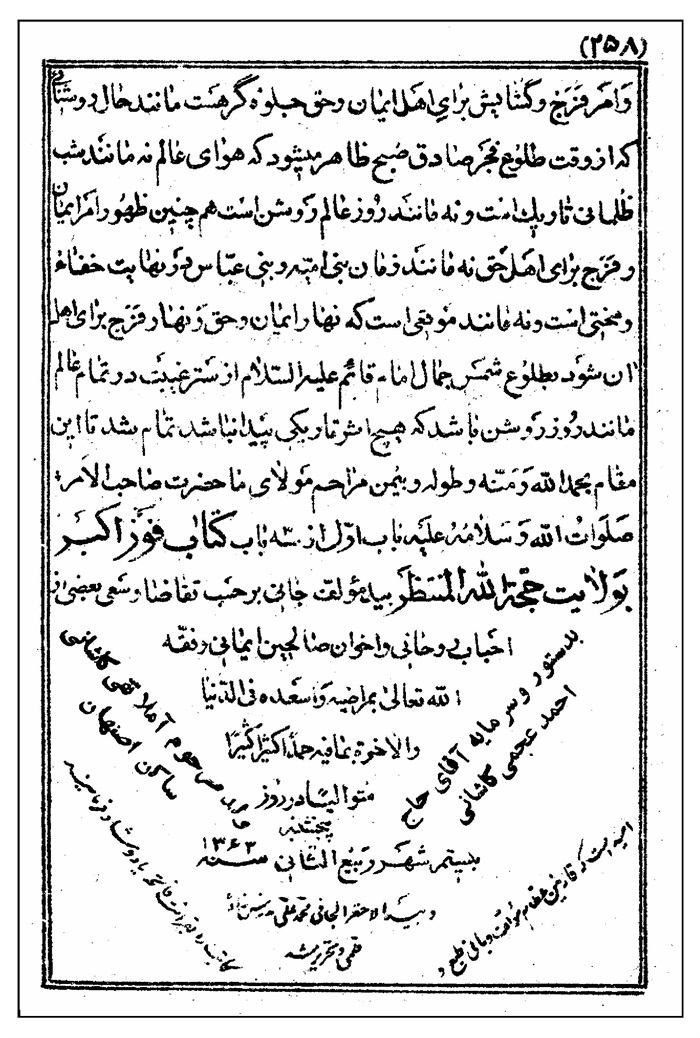 (۲۵۸)
وامر فرج و گشایش برای اهل ایمان و حق جلوه گر هست مانند حال روشنائی
که از وقت طلوع فجر صادق صبح ظاهر میشود که هوای عالم نه مانند شب
ظلمانی تاریک است و نه مانند روز عالم روشن است هم چنین ظهور امر ایمان
و فرج برای اهل حق نه مانند زمان بنی امیه و بنی عباس در نهایت خفاء
و سختی است و نه مانند موقعی است که نهار ایمان و حق و نهار فرج برای اهل
ان شود بطلوع شمس جمال امام قائم علیه السلام از ستر غیبت در تمام عالم
مانند روز روشن باشد که هیچ اثر تاریکی پیدا نباشد تمام شد تا این
مقام بحمد الله و منّه و طوله و بیمن مراحم مولای ما حضرت صاحب الامر
صلوات الله و سلامه علیه باب اول از سه باب کتاب فوز اکبر
بولایت حجة الله المنتظر بید مؤلف جانی بر حسب تقاضا و سعی بعضی از
احباب روحانی و اخوان صالحین ایمانی وفقه
الله تعالی بمراضیه و اسعده فی الدنیا
والاخرة بمافیه حمدا کثیرا کثیرا
متوالیا در روز
پنجشنبه
بیستم شهر ربیع الثانی سنه ۱۳۶۳
و بید الاحقر الجانی محمد علی
قلمی و تحریر شد
بدستور و سرمایه آقای حاج
احمد عجمی کاشانی
ولد مرحوم آملا تقی کاشانی
ساکن اصفهان
امید است که قارئین عظام مؤلف و بانی طبع و
کاتب را بفاتحه یاد و شاد فرمایند